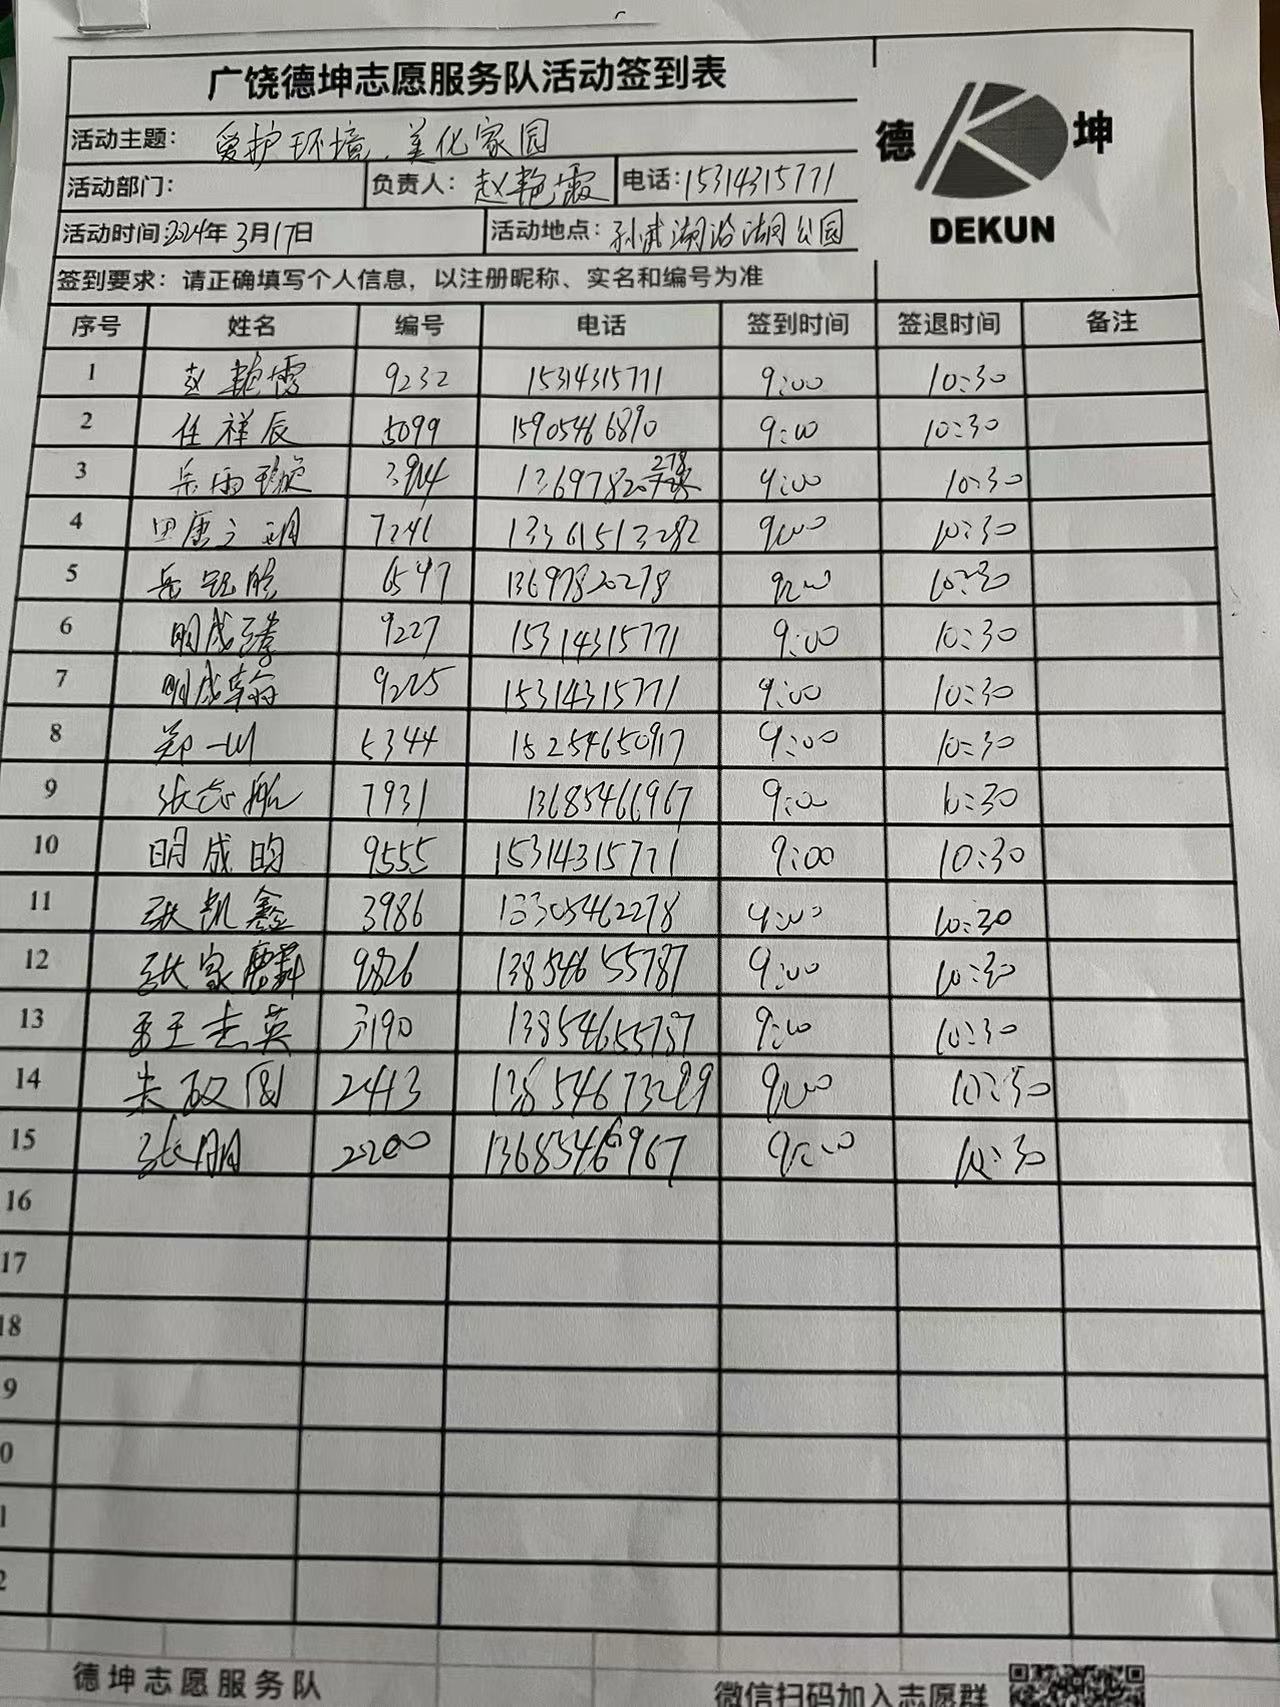 广饶德坤志愿服务队活动签到表
德 坤
DEKUN
活动主题： 爱护环境、美化家园
活动部门： 负责人：赵艳霞 电话：15314315771
活动时间：2024年3月17日 活动地点：孙武湖沿湖公园
签到要求：请正确填写个人信息，以注册昵称、实名和编号为准
序号 姓名 编号 电话 签到时间 签退时间 备注
1 赵艳霞 9232 15314315771 9:00 10:30
2 任祥辰 5099 15905466890 9:00 10:30
3 岳雨璇 13697820278 9:00 10:30
4 田唐 7241 13361513282 9:00 10:30
5 岳 6547 13697820278 9:00 10:30
6 明成 9227 15314315771 9:00 10:30
7 明成翰 9225 15314315771 9:00 10:30
8 郑一川 5344 15254650917 9:00 10:30
9 张志航 7931 13685466967 9:00 10:30
10 明成昀 9555 15314315771 9:00 10:30
11 张凯鑫 3986 13305462278 9:00 10:30
12 张家 9826 13854655787 9:00 10:30
13 王志英 3190 13854655787 9:00 10:30
14 朱 2443 13854673289 9:00 10:30
15 张明 2200 13685466967 9:00 10:30
16
17
18
9
0
1
2
德坤志愿服务队
微信扫码加入志愿群